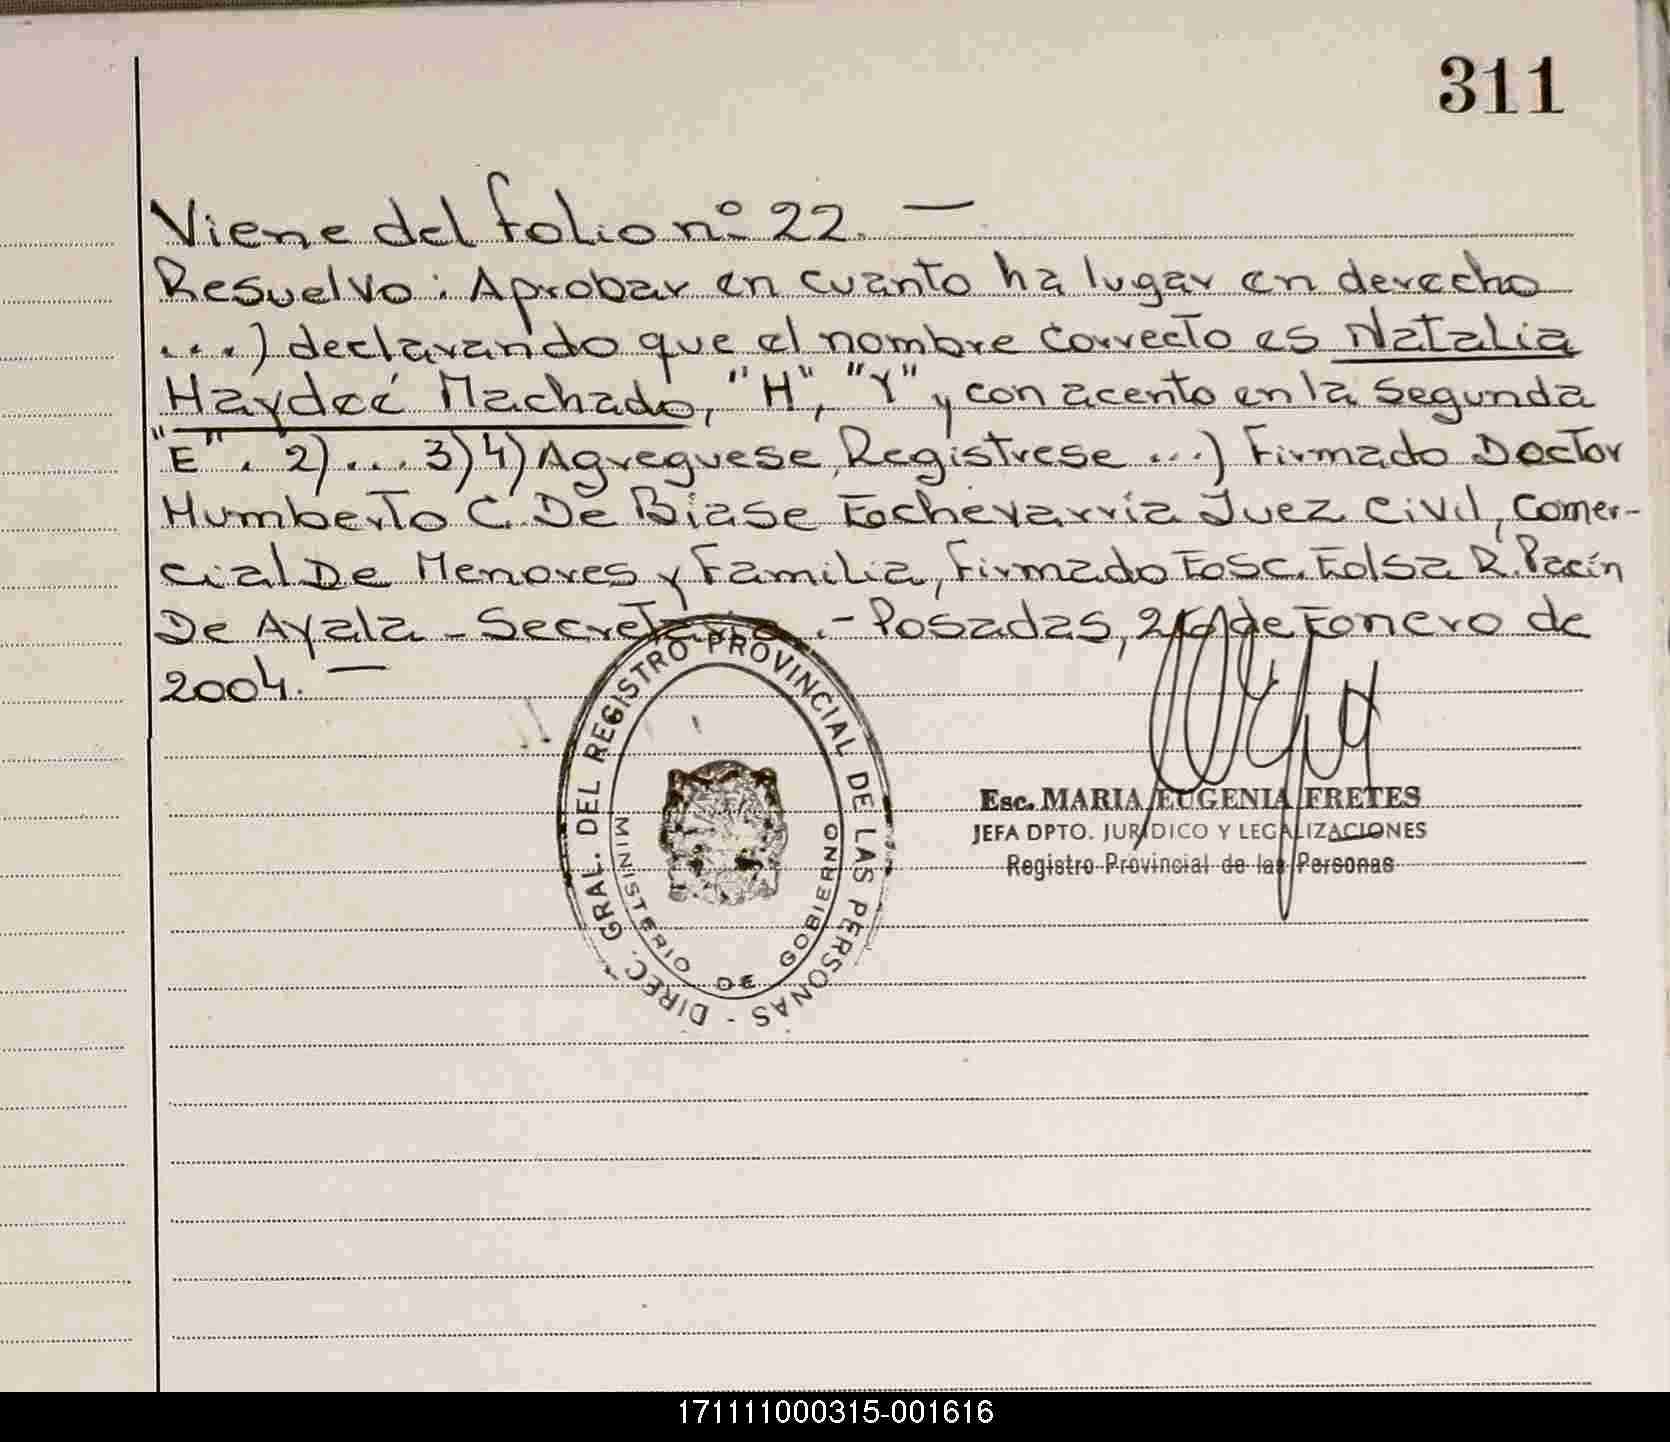 311
Viene del folio nº 22. —
Resuelvo: Aprobar en cuanto ha lugar en derecho
...) declarando que el nombre correcto es Natalia
Haydeé Machado, "H", "Y" y con acento en la segunda
"E". 2)... 3) 4) Agreguese, Registrese ...) Firmado Doctor
Humberto C. De Biase Echevarria Juez Civil, Comer-
cial De Menores y Familia, Firmado Esc. Elsa R. Pacín
De Ayala - Secretaria .- Posadas, de Enero de
2004. —
DIREC. GRAL. DEL REGISTRO PROVINCIAL DE LAS PERSONAS -
MINISTERIO DE GOBIERNO
Esc. MARIA EUGENIA FRETES
JEFA DPTO. JURIDICO Y LEGALIZACIONES
Registro Provincial de las Personas
171111000315-001616